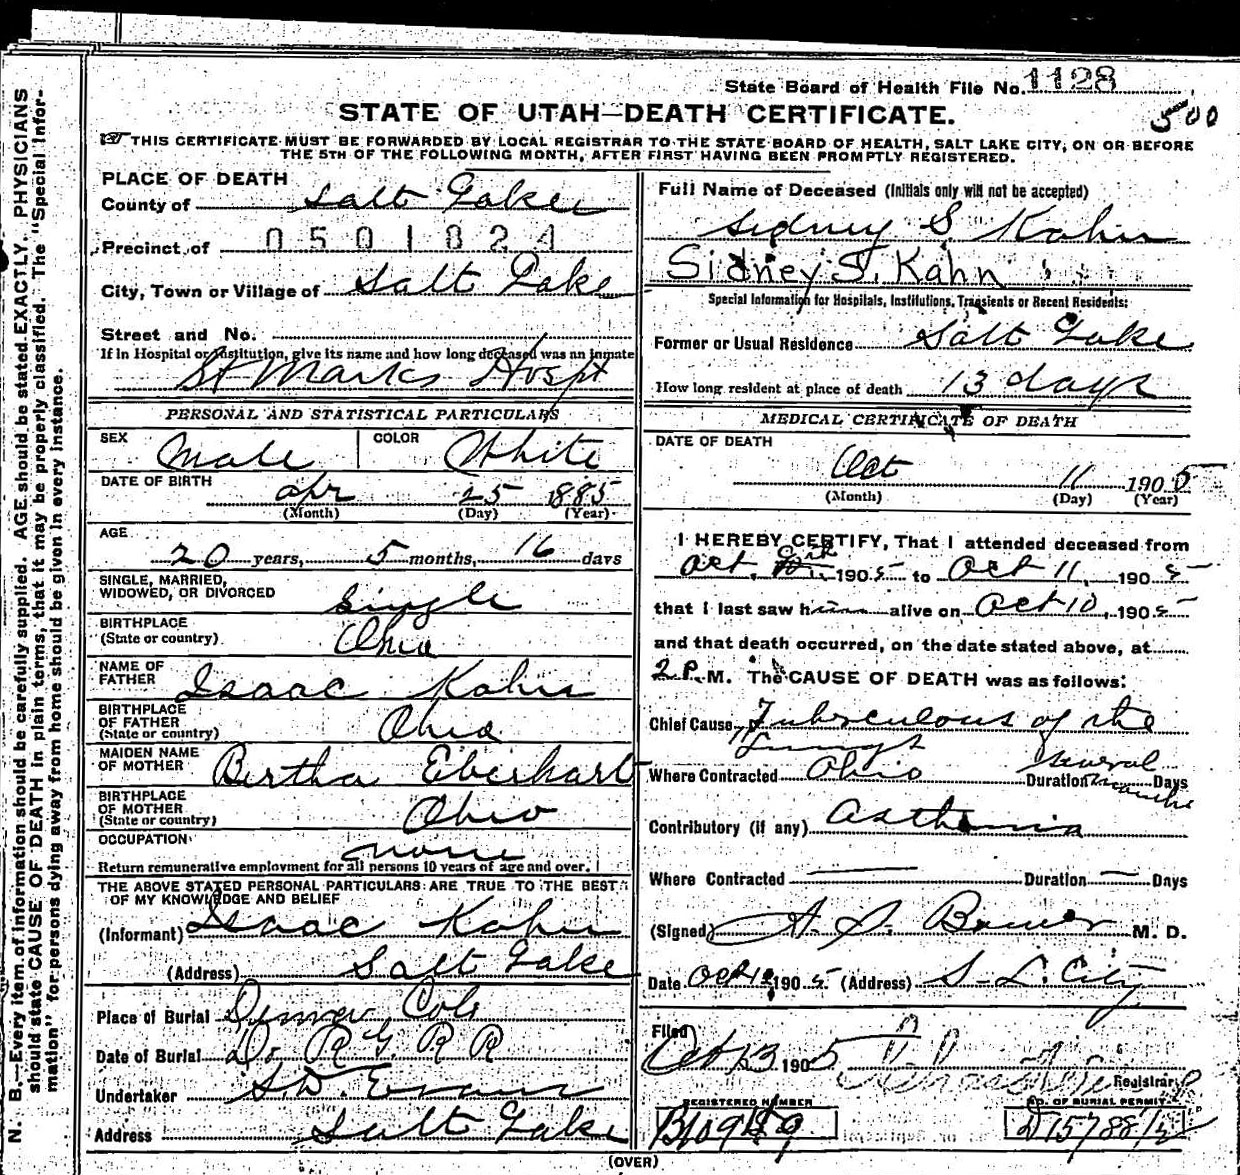 State Board of Health File No. 1128
STATE OF UTAH—DEATH CERTIFICATE.
500
THIS CERTIFICATE MUST BE FORWARDED BY LOCAL REGISTRAR TO THE STATE BOARD OF HEALTH, SALT LAKE CITY, ON OR BEFORE
THE 5TH OF THE FOLLOWING MONTH, AFTER FIRST HAVING BEEN PROMPTLY REGISTERED.
N. B.—Every item of information should be carefully supplied. AGE should be stated EXACTLY. PHYSICIANS
should state CAUSE OF DEATH in plain terms, that it may be properly classified. The "Special Infor-
mation" for persons dying away from home should be given in every instance.
PLACE OF DEATH
County of Salt Lake
Precinct of 0501824
City, Town or Village of Salt Lake
Street and No.
If in Hospital or Institution, give its name and how long deceased was an inmate
St Marks Hospt
PERSONAL AND STATISTICAL PARTICULARS
SEX Male COLOR White
DATE OF BIRTH Apr 25 1885
(Month) (Day) (Year)
AGE
20 years, 5 months, 16 days
SINGLE, MARRIED,
WIDOWED, OR DIVORCED Single
BIRTHPLACE
(State or country) Ohio
NAME OF
FATHER Isaac Kahn
BIRTHPLACE
OF FATHER
(State or country) Ohio
MAIDEN NAME
OF MOTHER Bertha Eberhart
BIRTHPLACE
OF MOTHER
(State or country) Ohio
OCCUPATION none
Return remunerative employment for all persons 10 years of age and over.
THE ABOVE STATED PERSONAL PARTICULARS ARE TRUE TO THE BEST
OF MY KNOWLEDGE AND BELIEF
(Informant) Isaac Kahn
(Address) Salt Lake
Place of Burial Denver Colo
Date of Burial D. R G. R R
Undertaker S.D. Evans
Address Salt Lake
Full Name of Deceased (Initials only will not be accepted)
Sidney S. Kahn
Sidney S. Kahn
Special Information for Hospitals, Institutions, Transients or Recent Residents:
Former or Usual Residence Salt Lake
How long resident at place of death 13 days
MEDICAL CERTIFICATE OF DEATH
DATE OF DEATH
Oct 11 1905
(Month) (Day) (Year)
I HEREBY CERTIFY, That I attended deceased from
Oct. 1905 to Oct 11, 1905
that I last saw him alive on Oct 10, 1905
and that death occurred, on the date stated above, at
2 P. M. The CAUSE OF DEATH was as follows:
Chief Cause Tuberculous of the
Lungs
Where Contracted Ohio Duration several months Days
Contributory (if any) Asthenia
Where Contracted — Duration — Days
(Signed) M. D.
Date Oct 12 1905 (Address) S. L. City
Filed
Oct 13 1905 Registrar
REGISTERED NUMBER
NO. OF BURIAL PERMIT
D 15788 1/2
(OVER)